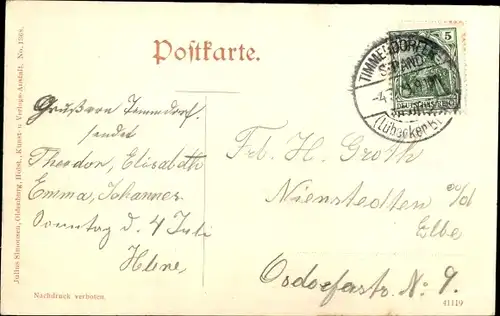 Postkarte.
5
TIMMENDORFER
STRAND
-4.
DEUTSCHES REICH
(Lübecker B.)
Gruss von Timmdorf.
sendet
Theodor, Elisabeth
Emma, Johannes
Sonntag d. 4 Juli
Helene,
Frl. H. Groth
Nienstedten a/d
Elbe
No. 9.
Julius Simonsen, Oldenburg, Holst., Kunst- u. Verlags-Anstalt, No.
Nachdruck verboten.
41119